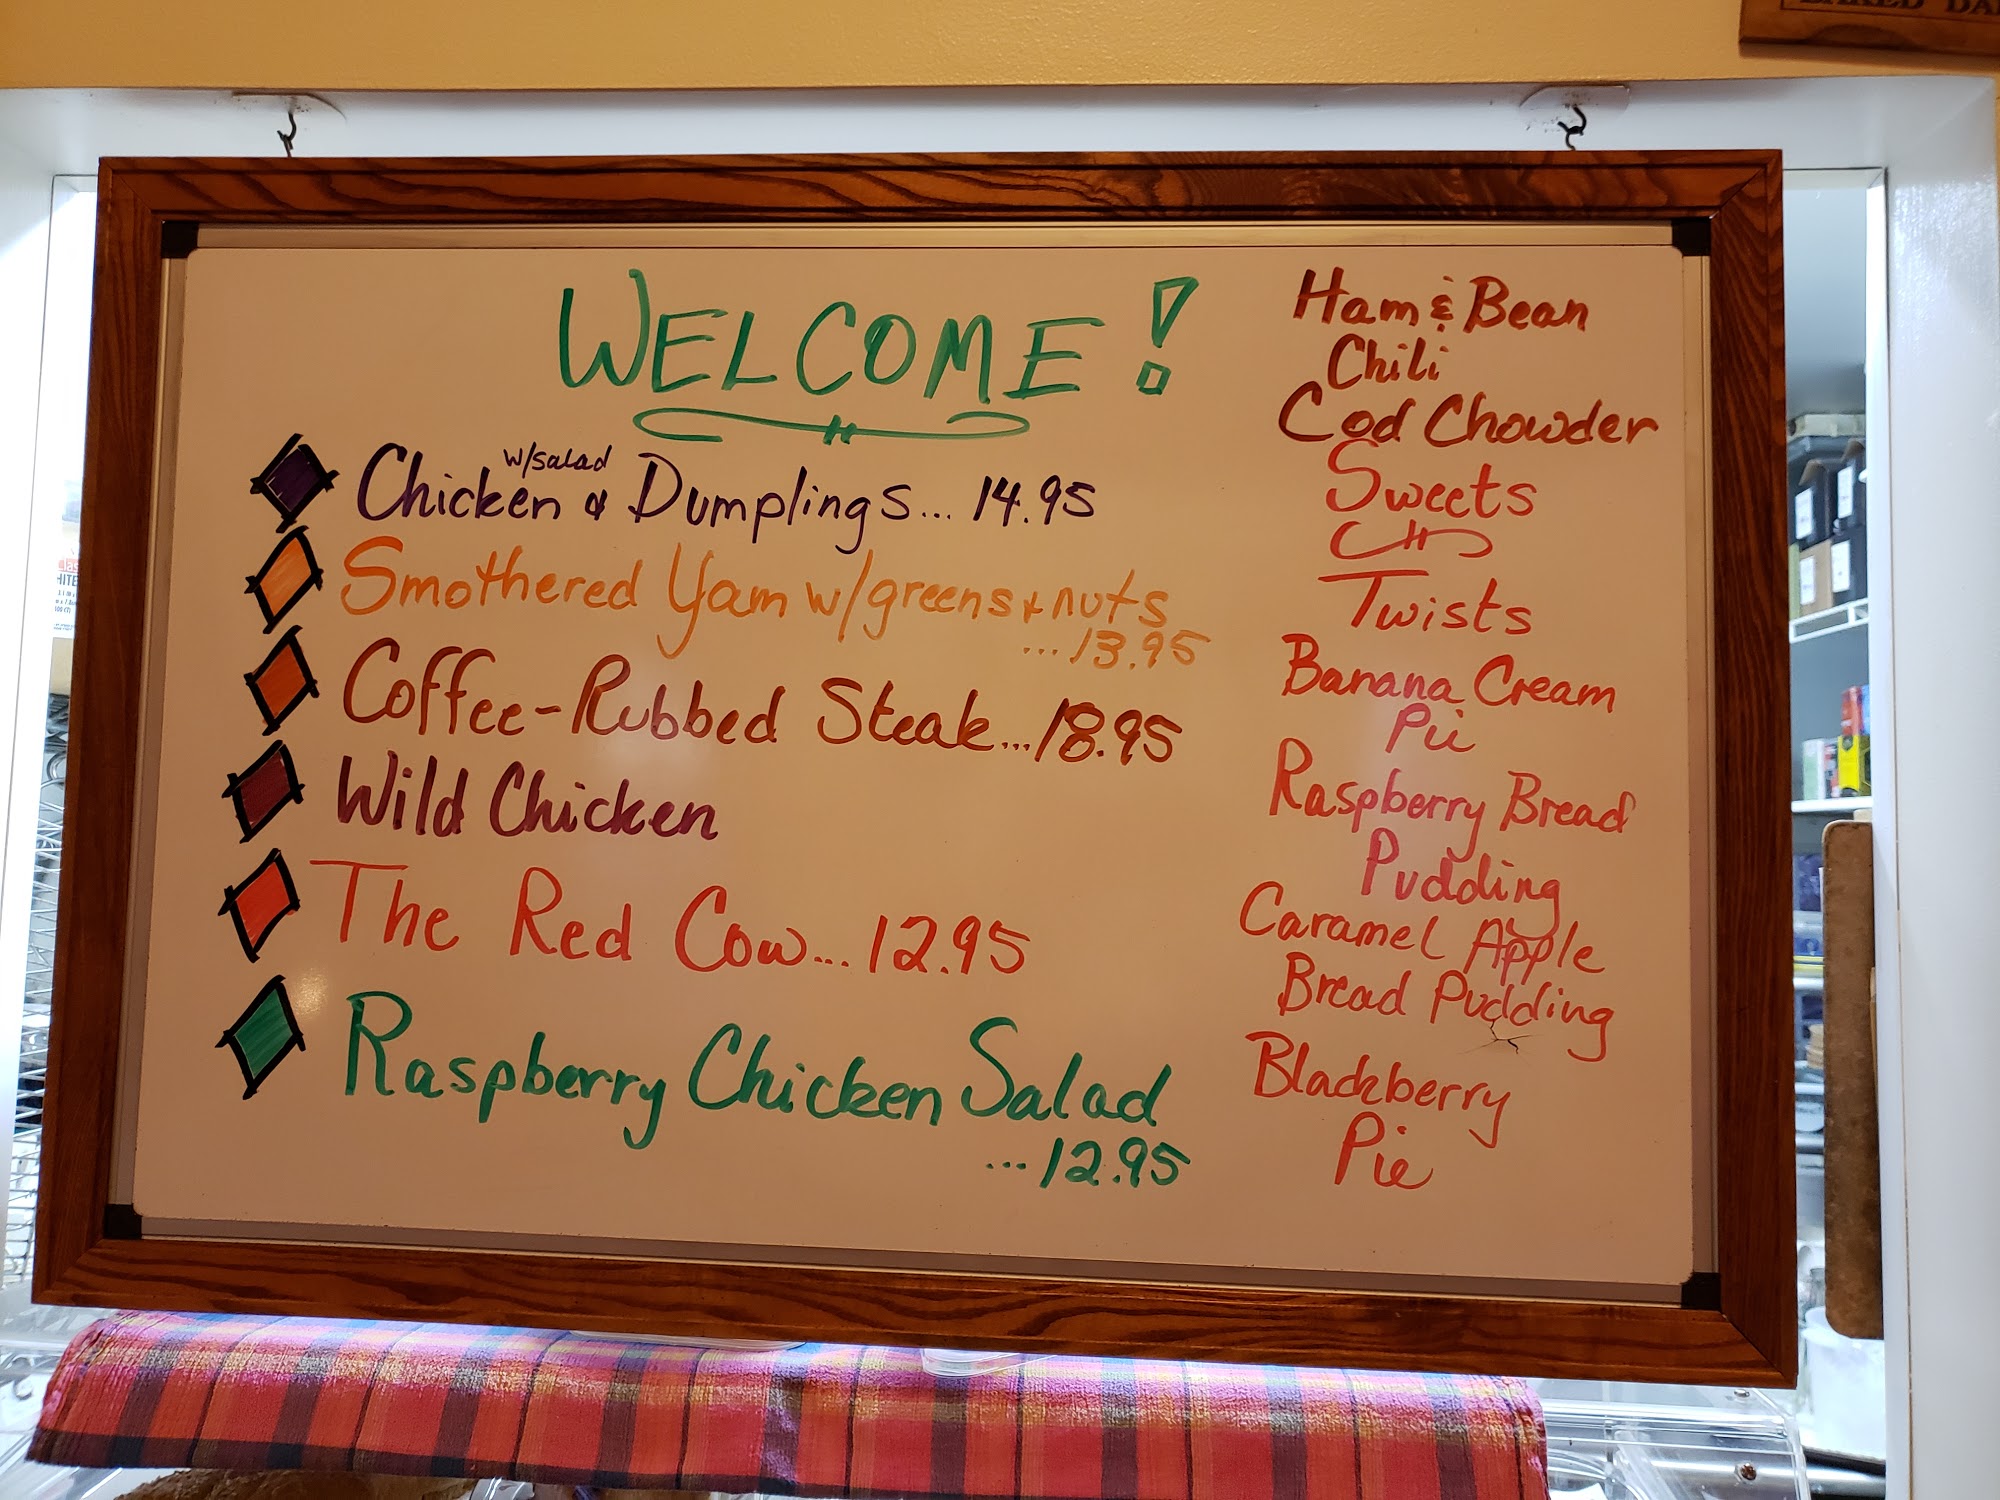 WELCOME!
w/salad
Chicken & Dumplings... 14.95
Smothered Yam w/greens + nuts
...13.95
Coffee-Rubbed Steak...18.95
Wild Chicken
The Red Cow...12.95
Raspberry Chicken Salad
...12.95
Ham & Bean
Chili
Cod Chowder
Sweets
Twists
Banana Cream
Pie
Raspberry Bread
Pudding
Caramel Apple
Bread Pudding
Blackberry
Pie